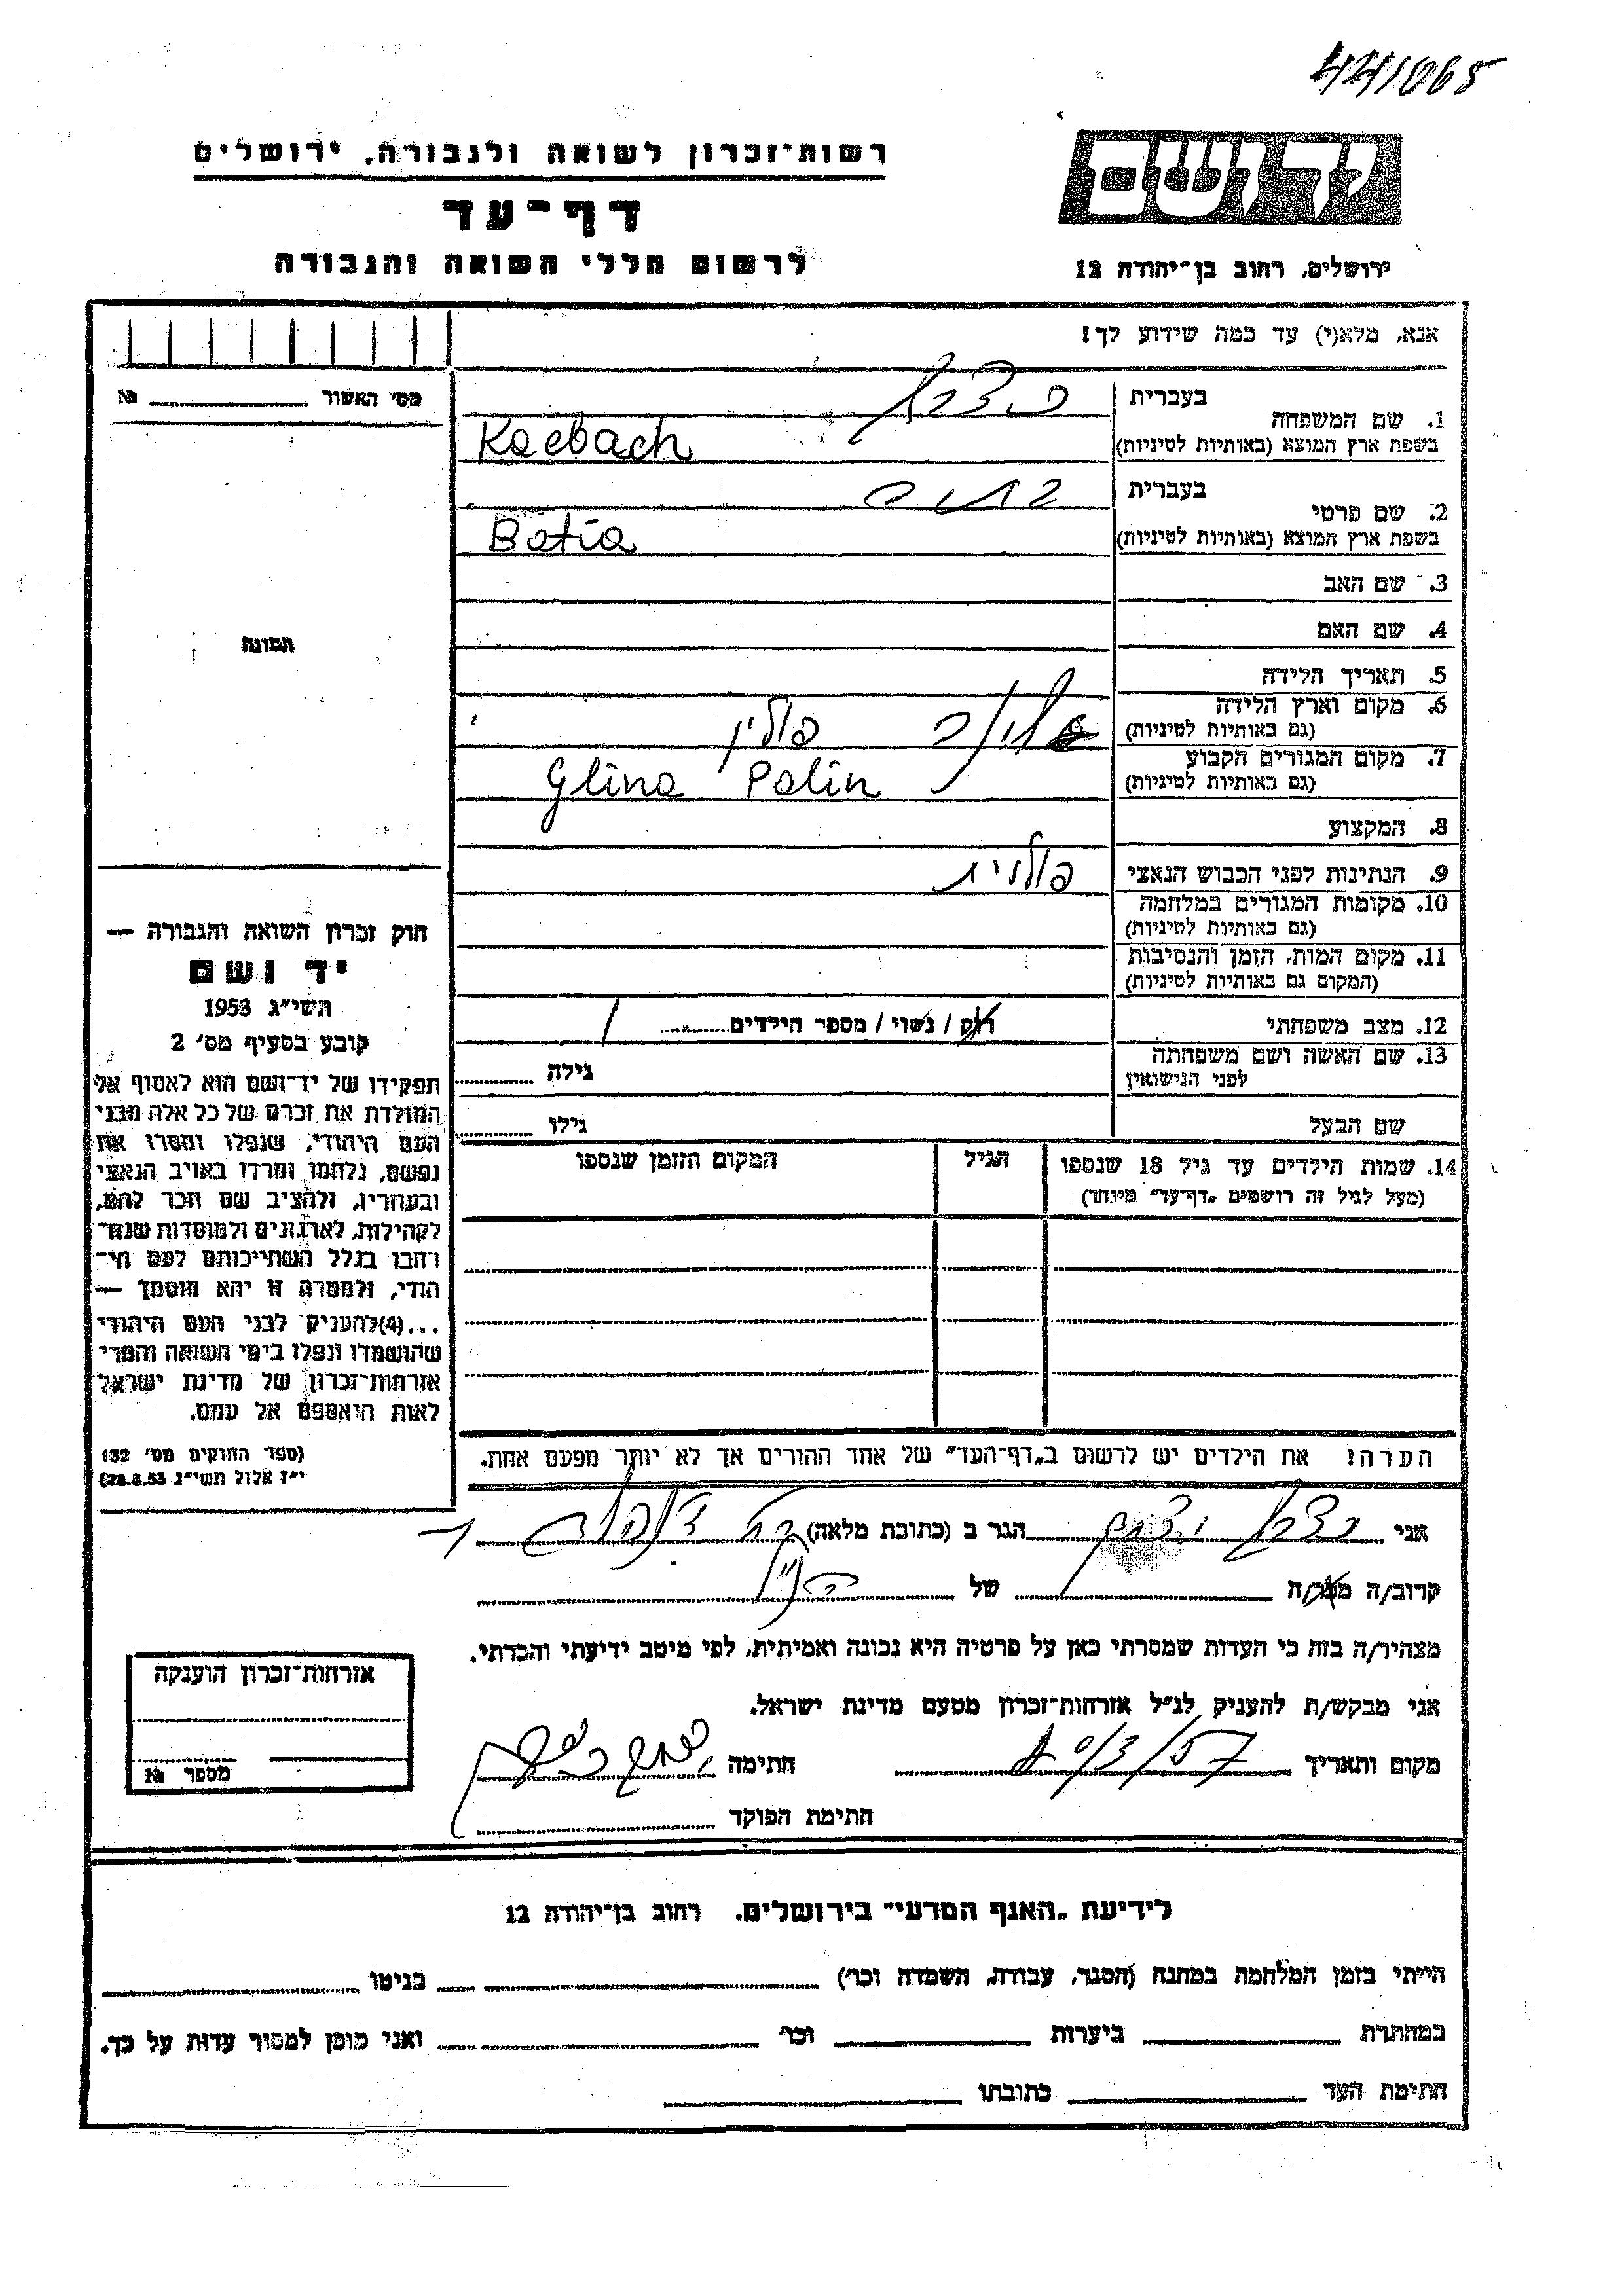 441065
רשות־זכרון לשואה ולגבורה, ירושלים
יד ושם
דף־עד
לרשום חללי השואה והגבורה
ירושלים, רחוב בן־יהודה 12
אנא, מלא(י) עד כמה שידוע לך!
מס׳ האשור № 
1. שם המשפחה
בעברית
בשפת ארץ המוצא (באותיות לטיניות) Koebach
2. שם פרטי
בעברית בתיה
בשפת ארץ המוצא (באותיות לטיניות) Batia
3. שם האב
4. שם האם
תמונה
5. תאריך הלידה
6. מקום וארץ הלידה
(גם באותיות לטיניות) גלינה פולין
7. מקום המגורים הקבוע
(גם באותיות לטיניות) Glina Polin
8. המקצוע
9. הנתינות לפני הכבוש הנאצי פולנית
10. מקומות המגורים במלחמה
(גם באותיות לטיניות)
11. מקום המות, הזמן והנסיבות
(המקום גם באותיות לטיניות)
12. מצב משפחתי רוק / נשוי / מספר הילדים
13. שם האשה ושם משפחתה
לפני הנישואין גילה
שם הבעל גילו
14. שמות הילדים עד גיל 18 שנספו הגיל המקום והזמן שנספו
(מעל לגיל זה רושמים „דף־עד” מיוחד)
הערה: את הילדים יש לרשום ב„דף־העד” של אחד ההורים אך לא יותר מפעם אחת.
חוק זכרון השואה והגבורה —
יד ושם
תשי״ג 1953
קובע בסעיף מס׳ 2
תפקידו של יד־ושם הוא לאסוף אל
המולדת את זכרם של כל אלה מבני
העם היהודי, שנפלו ומסרו את
נפשם, נלחמו ומרדו באויב הנאצי
ובעוזריו, ולהציב שם וזכר להם,
לקהילות, לארגונים ולמוסדות שנח־
רבו בגלל השתייכותם לעם הי־
הודי, ולמטרה זו יהא מוסמך —
...(4)להעניק לבני העם היהודי
שהושמדו ונפלו בימי השואה והמרי
אזרחות־זכרון של מדינת ישראל
לאות היאספם אל עמם.
(ספר החוקים מס׳ 132
י״ז אלול תשי״ג 28.8.53)
אני הגר ב (כתובת מלאה)
קרוב/ה מכר/ה של הנ״ל
מצהיר/ה בזה כי העדות שמסרתי כאן על פרטיה היא נכונה ואמיתית, לפי מיטב ידיעתי והכרתי.
אני מבקש/ת להעניק לנ״ל אזרחות־זכרון מטעם מדינת ישראל.
מקום ותאריך חתימה
חתימת הפוקד
אזרחות־זכרון הוענקה
מספר №
לידיעת „האגף המדעי” בירושלים. רחוב בן־יהודה 12
הייתי בזמן המלחמה במחנה (הסגר, עבודה, השמדה וכו׳) בגיטו
במחתרת ביערות וכו׳ ואני מוכן למסור עדות על כך.
חתימת העד כתובתו